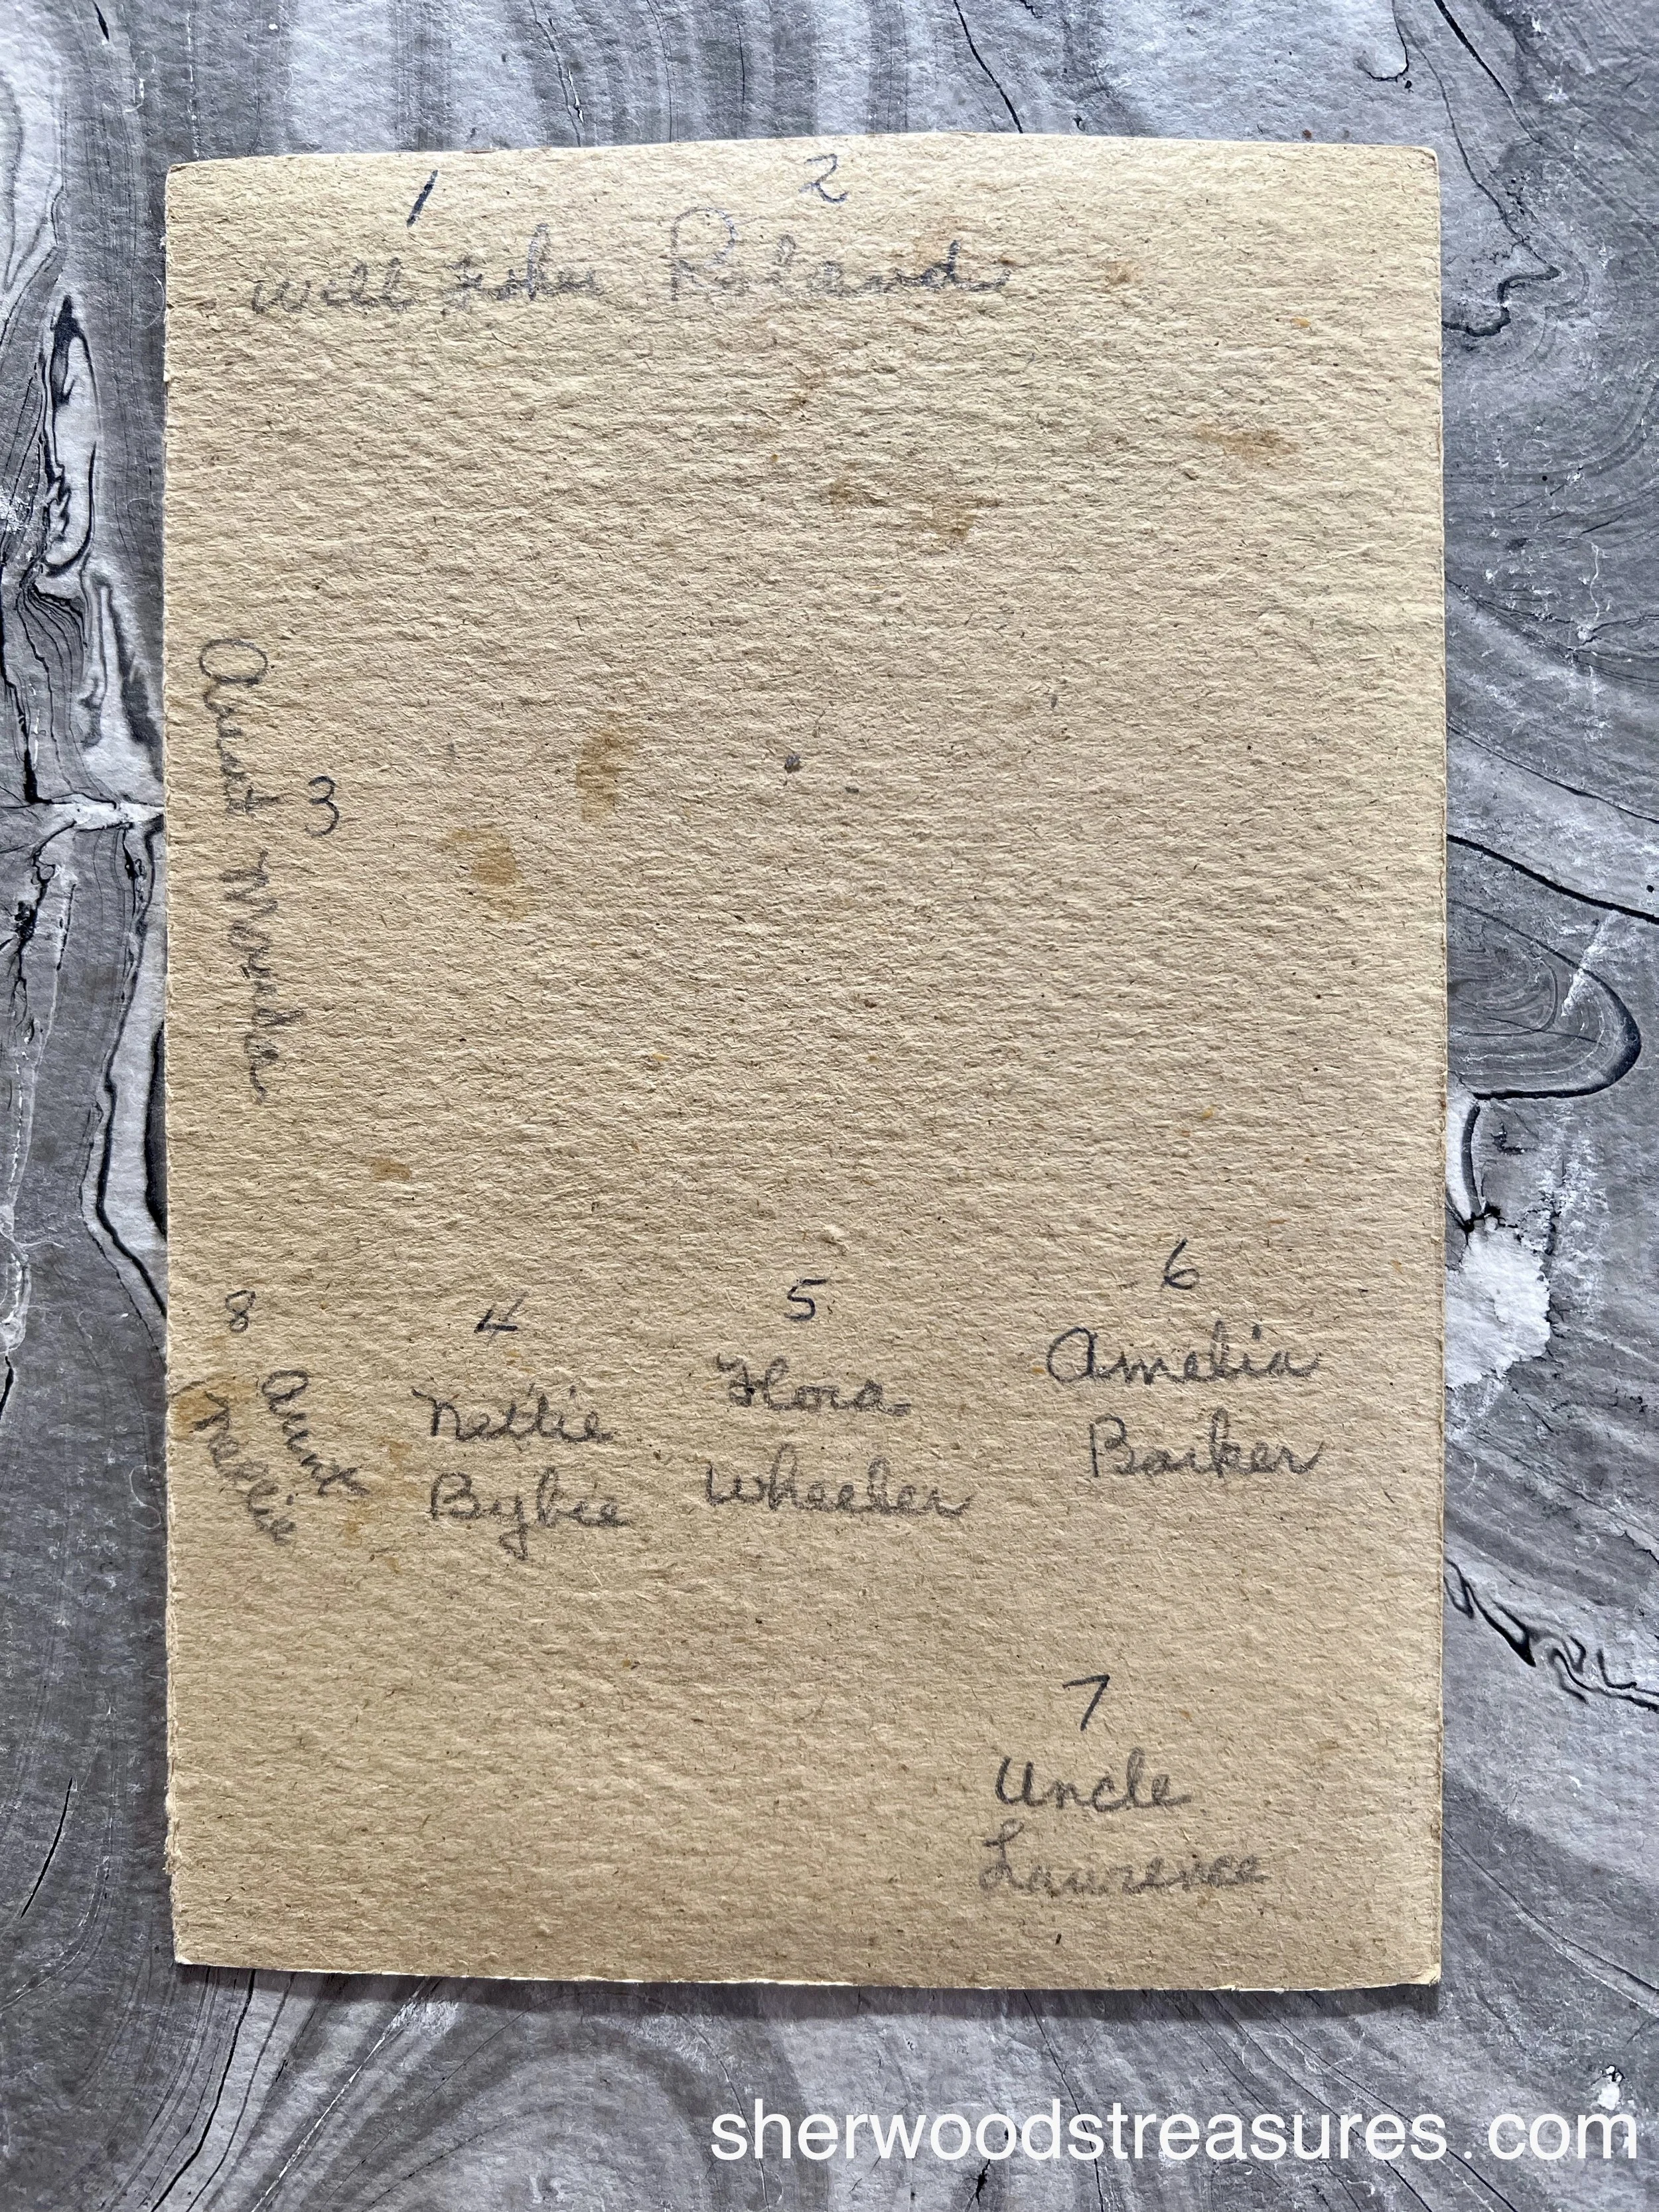 1 2
Will John Roland
3
Aunt
8 4 5 6
Aunt Nettie Flora Amelia
Nellie Bybee Wheeler Barker
7
Uncle
Lawrence
sherwoodstreasures.com